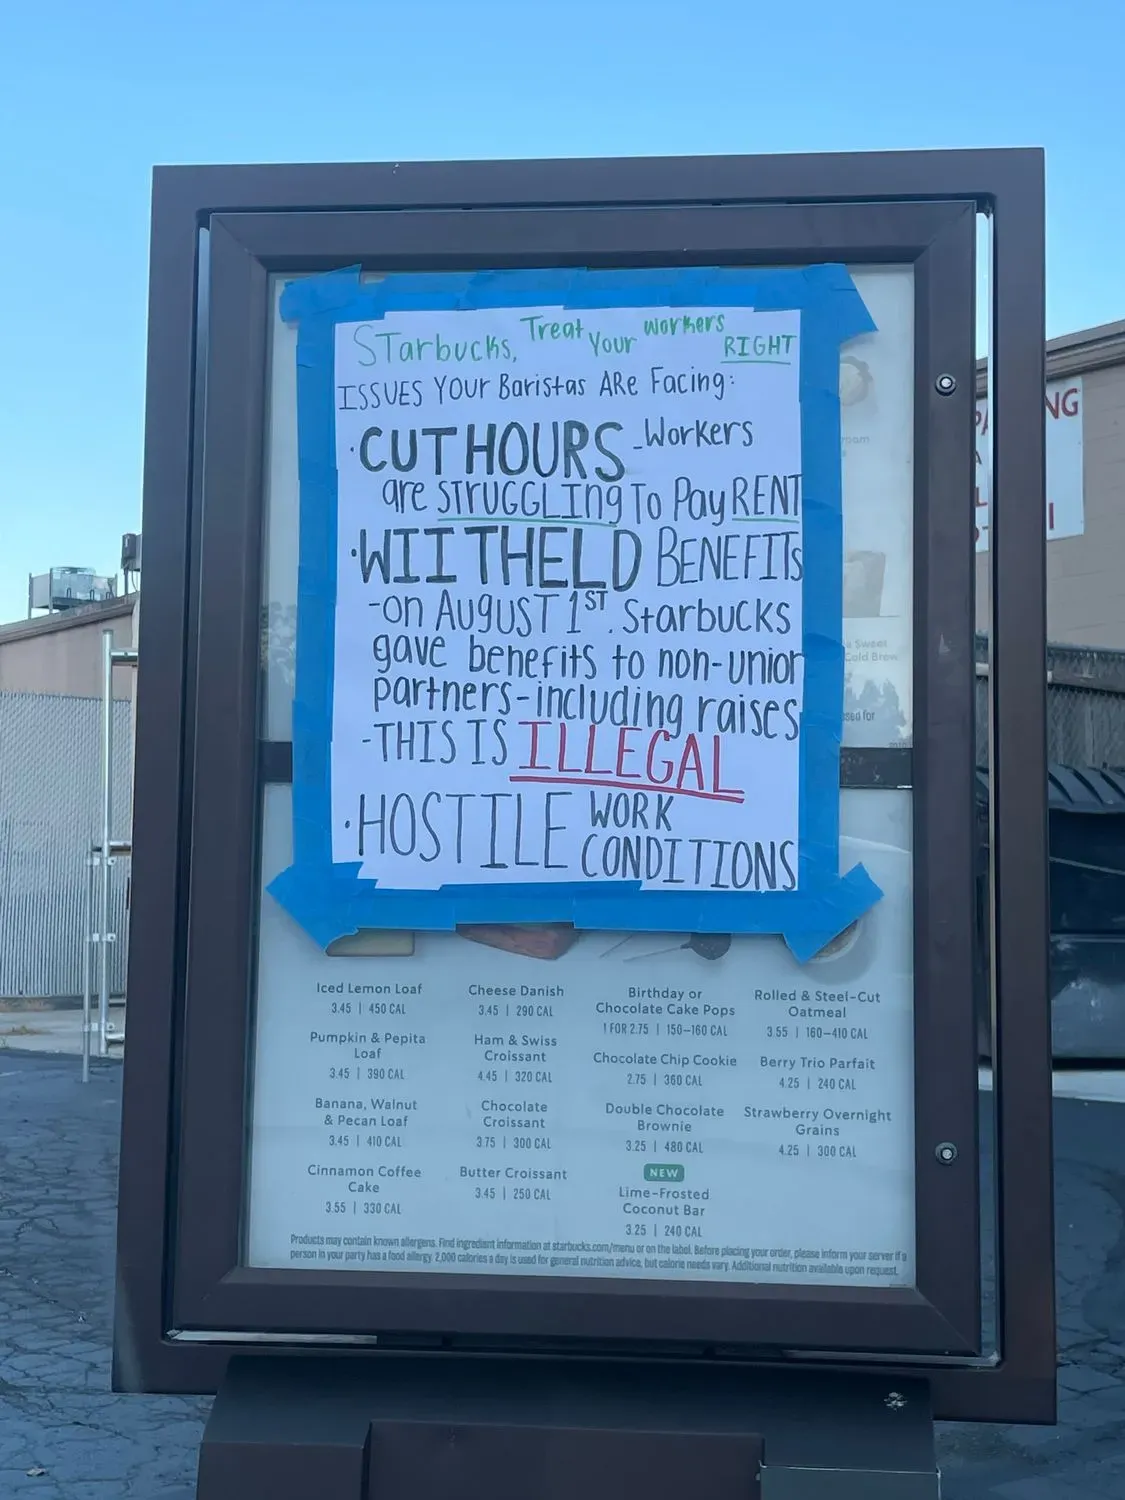 STarbucks, Treat Your workers RIGHT
ISSUES YOUR Baristas ARe Facing:
· CUT HOURS - Workers
are STRUGGLING To Pay RENT
· WIITHELD BENEFITs
- on AUGUST 1ST. Starbucks
gave benefits to non-union
partners - including raises
- THIS IS ILLEGAL
· HOSTILE WORK
CONDITIONS
NG
a Sweet
Cold Brew
Iced Lemon Loaf
3.45 | 450 CAL
Pumpkin & Pepita
Loaf
3.45 | 390 CAL
Banana, Walnut
& Pecan Loaf
3.45 | 410 CAL
Cinnamon Coffee
Cake
3.55 | 330 CAL
Cheese Danish
3.45 | 290 CAL
Ham & Swiss
Croissant
4.45 | 320 CAL
Chocolate
Croissant
3.75 | 300 CAL
Butter Croissant
3.45 | 250 CAL
Birthday or
Chocolate Cake Pops
1 FOR 2.75 | 150–160 CAL
Chocolate Chip Cookie
2.75 | 360 CAL
Double Chocolate
Brownie
3.25 | 480 CAL
NEW
Lime-Frosted
Coconut Bar
3.25 | 240 CAL
Rolled & Steel-Cut
Oatmeal
3.55 | 160–410 CAL
Berry Trio Parfait
4.25 | 240 CAL
Strawberry Overnight
Grains
4.25 | 300 CAL
Products may contain known allergens. Find ingredient information at starbucks.com/menu or on the label. Before placing your order, please inform your server if a
person in your party has a food allergy. 2,000 calories a day is used for general nutrition advice, but calorie needs vary. Additional nutrition available upon request.